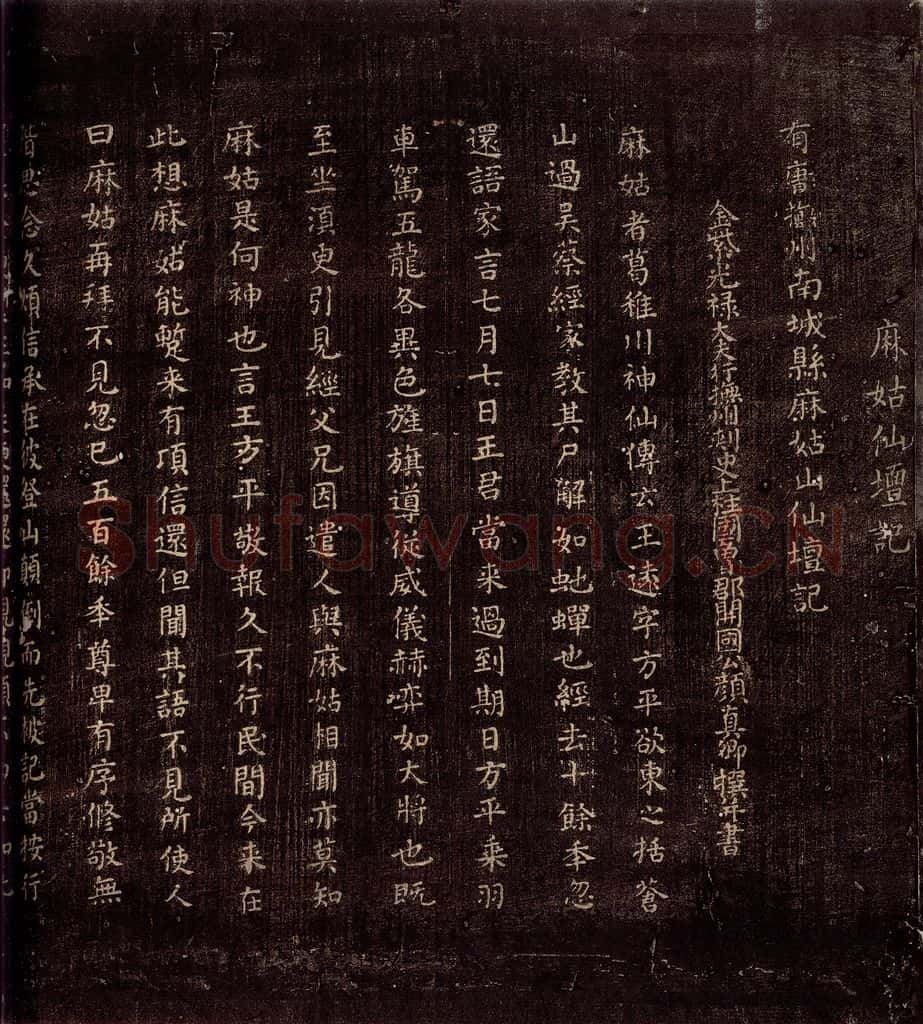 麻姑仙壇記
有唐撫州南城縣麻姑山仙壇記
金紫光祿大夫行撫州刺史上柱國魯郡開國公顏真卿撰并書
麻姑者葛稚川神仙傳云王遠字方平欲東之括蒼
山過吳蔡經家教其尸解如虵蟬也經去十餘年忽
還語家言七月七日王君當来過到期日方平乗羽
車駕五龍各異色旌旗導從威儀赫弈如大將也既
至坐湏臾引見經父兄因遣人與麻姑相聞亦莫知
麻姑是何神也言王方平敬報久不行民間今来在
此想麻姑能蹔来有頃信還但聞其語不見所使人
曰麻姑再拜不見忽已五百餘年尊卑有序修敬無
階思念久煩信承在彼登山顛倒而先被記當按行
Shufawang.CN